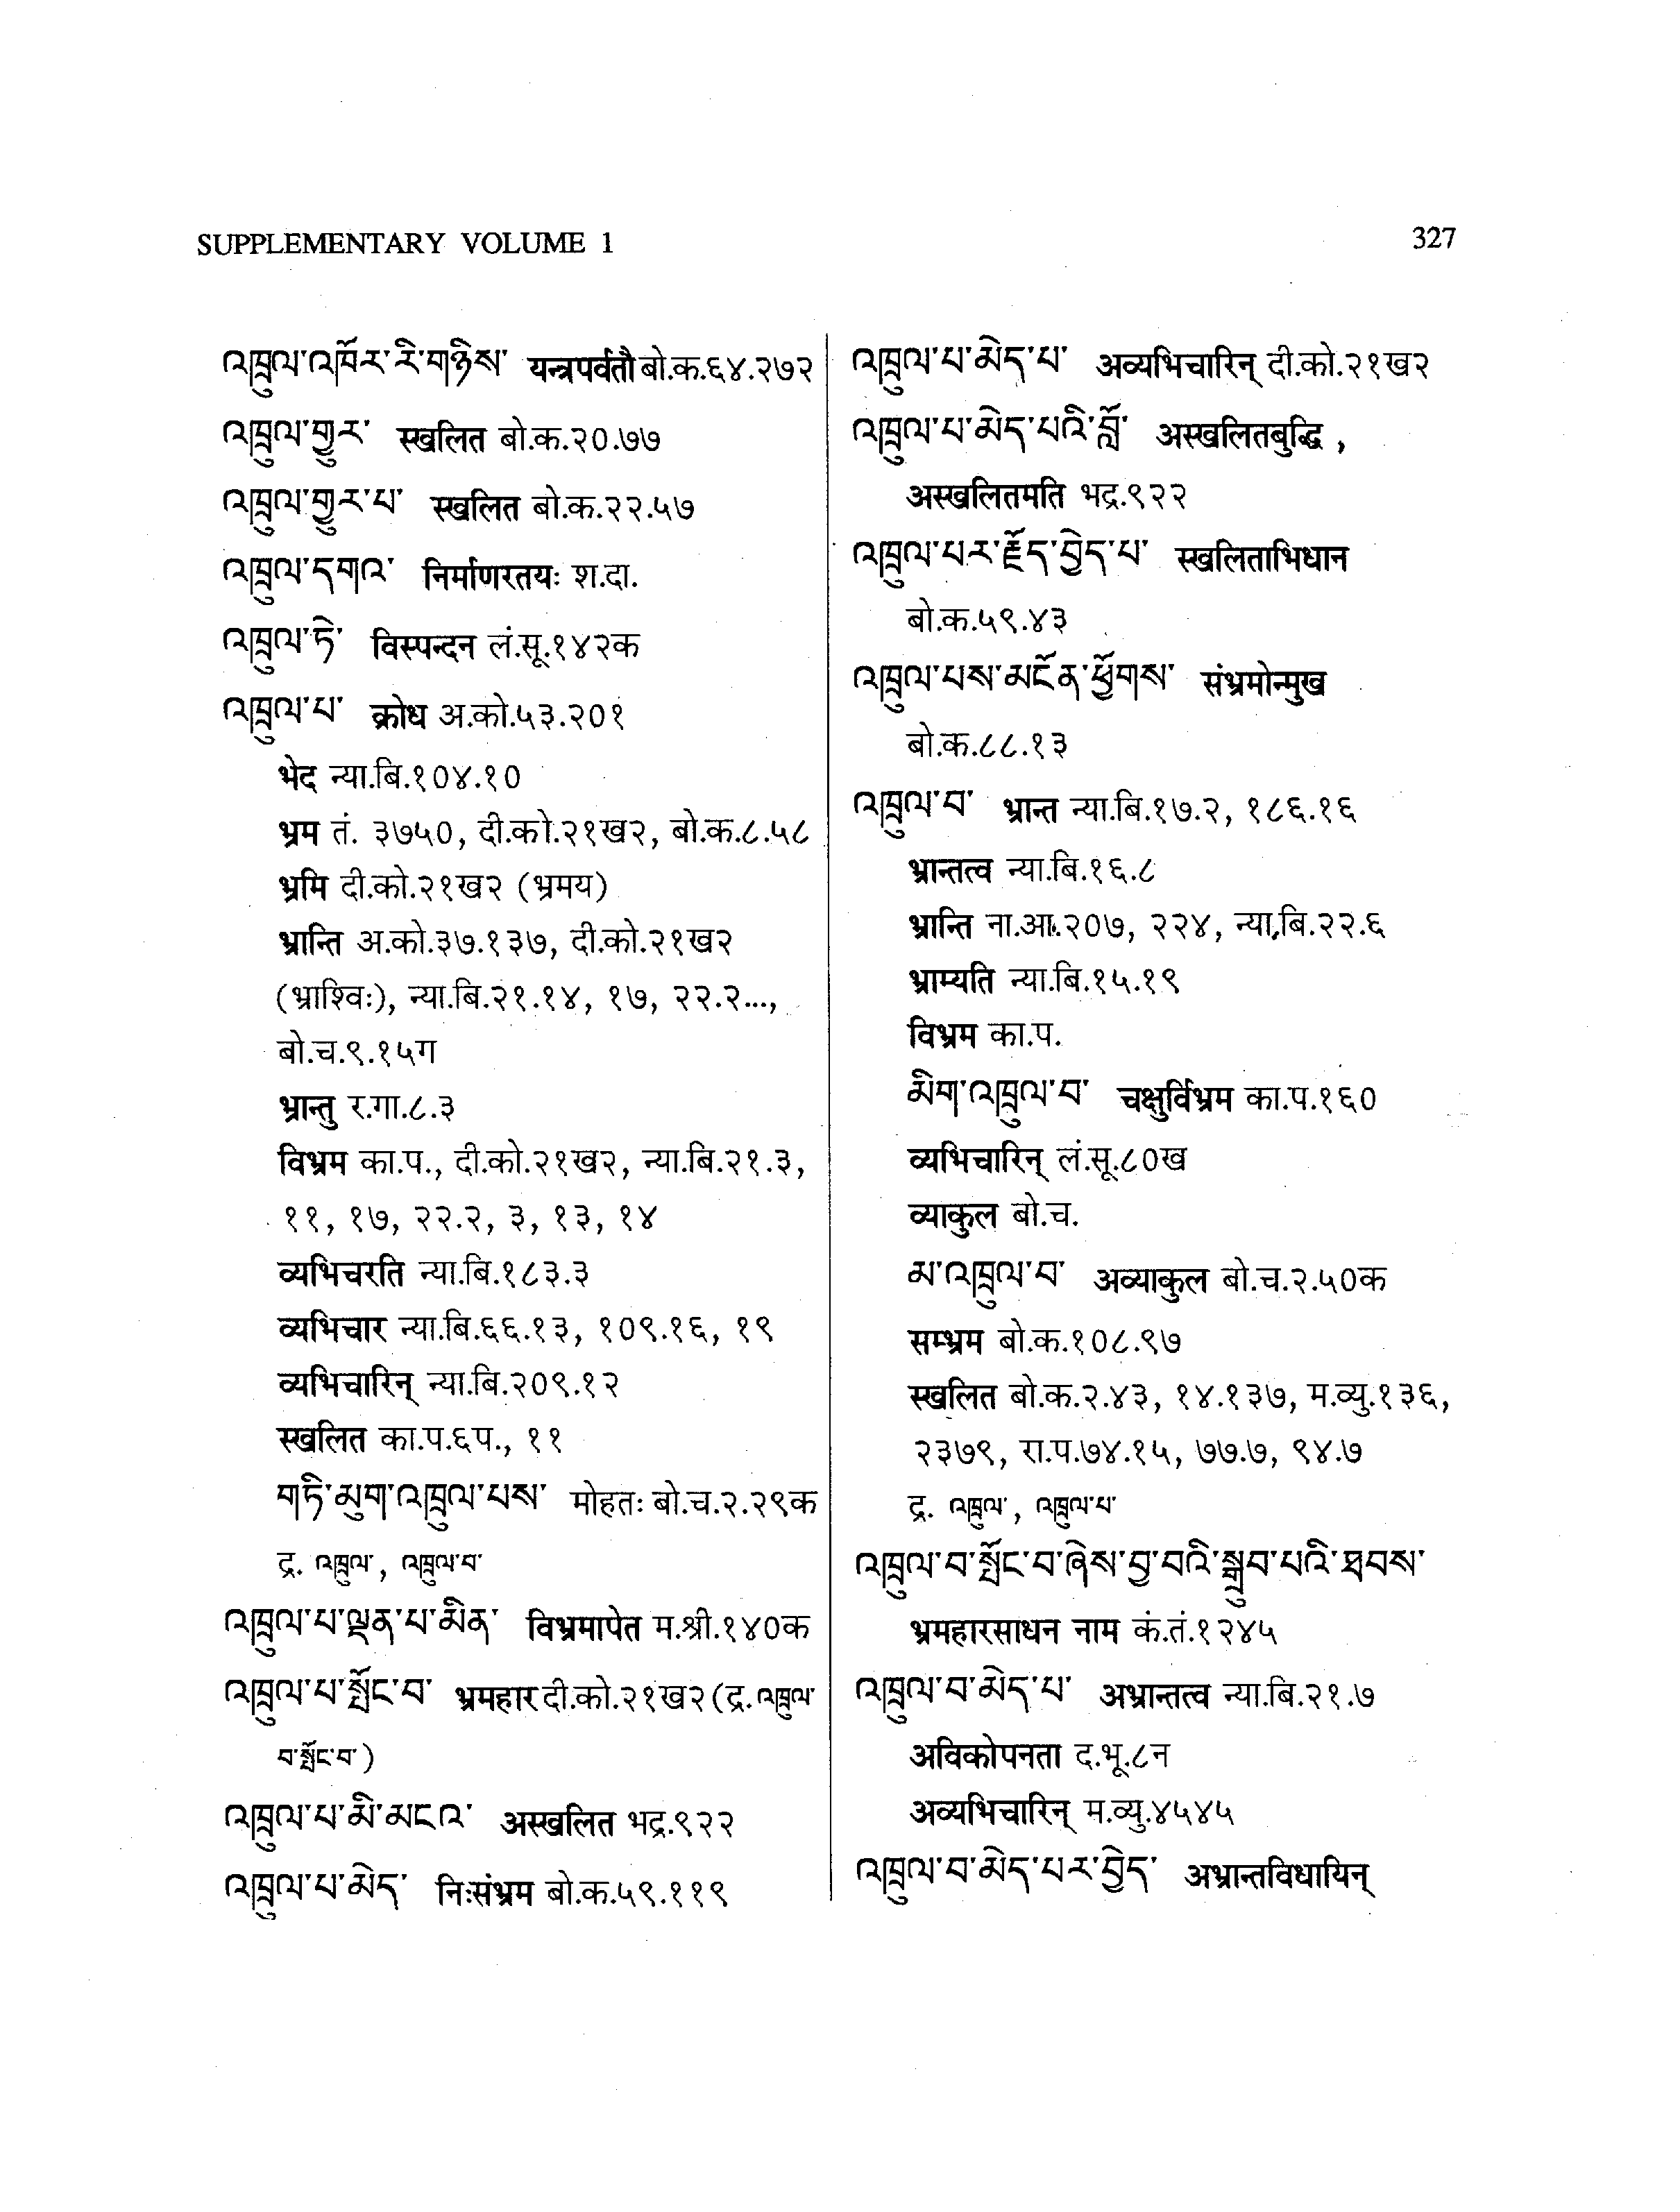 SUPPLEMENTARY VOLUME 1
327
འཁྲུལ་འཁོར་རི་གཉིས་ यन्त्रपर्वतौ बो.क.६४.२७२
འཁྲུལ་གྱུར་ स्खलित बो.क.२०.७७
འཁྲུལ་གྱུར་པ་ स्खलित बो.क.२२.५७
འཁྲུལ་དགའ་ निर्माणरतयः श.दा.
འཁྲུལ་ཏེ་ विस्पन्दन लं.सू.१४२क
འཁྲུལ་པ་ क्रोध अ.को.५३.२०१
भेद न्या.बि.१०४.१०
भ्रम तं. ३७५०, दी.को.२१ख२, बो.क.८.५८
भ्रमि दी.को.२१ख२ (भ्रमय)
भ्रान्ति अ.को.३७.१३७, दी.को.२१ख२
(भ्राश्विः), न्या.बि.२१.१४, १७, २२.२...,
बो.च.९.१५ग
भ्रान्तु र.गा.८.३
विभ्रम का.प., दी.को.२१ख२, न्या.बि.२१.३,
११, १७, २२.२, ३, १३, १४
व्यभिचरति न्या.बि.१८३.३
व्यभिचार न्या.बि.६६.१३, १०९.१६, १९
व्यभिचारिन् न्या.बि.२०९.१२
स्खलित का.प.६प., ११
གཏི་མུག་འཁྲུལ་པས་ मोहतः बो.च.२.२९क
द्र. འཁྲུལ་, འཁྲུལ་བ་
འཁྲུལ་པ་ལྡན་པ་མིན་ विभ्रमापेत म.श्री.१४०क
འཁྲུལ་པ་སྤོང་བ་ भ्रमहार दी.को.२१ख२ (द्र. འཁྲུལ་
བ་སྤོང་བ་)
འཁྲུལ་པ་མི་མངའ་ अस्खलित भद्र.९२२
འཁྲུལ་པ་མེད་ निःसंभ्रम बो.क.५९.११९
འཁྲུལ་པ་མེད་པ་ अव्यभिचारिन् दी.को.२१ख२
འཁྲུལ་པ་མེད་པའི་བློ་ अस्खलितबुद्धि,
अस्खलितमति भद्र.९२२
འཁྲུལ་པར་རྗོད་བྱེད་པ་ स्खलिताभिधान
बो.क.५९.४३
འཁྲུལ་པས་མངོན་ཕྱོགས་ संभ्रमोन्मुख
बो.क.८८.१३
འཁྲུལ་བ་ भ्रान्त न्या.बि.१७.२, १८६.१६
भ्रान्तत्व न्या.बि.१६.८
भ्रान्ति ना.आ.२०७, २२४, न्या.बि.२२.६
भ्राम्यति न्या.बि.१५.१९
विभ्रम का.प.
མིག་འཁྲུལ་བ་ चक्षुर्विभ्रम का.प.१६०
व्यभिचारिन् लं.सू.८०ख
व्याकुल बो.च.
མ་འཁྲུལ་བ་ अव्याकुल बो.च.२.५०क
सम्भ्रम बो.क.१०८.९७
स्खलित बो.क.२.४३, १४.१३७, म.व्यु.१३६,
२३७९, रा.प.७४.१५, ७७.७, ९४.७
द्र. འཁྲུལ་, འཁྲུལ་པ་
འཁྲུལ་བ་སྤོང་བ་ཞེས་བྱ་བའི་སྒྲུབ་པའི་ཐབས་
भ्रमहारसाधन नाम कं.तं.१२४५
འཁྲུལ་བ་མེད་པ་ अभ्रान्तत्व न्या.बि.२१.७
अविकोपनता द.भू.८न
अव्यभिचारिन् म.व्यु.४५४५
འཁྲུལ་བ་མེད་པར་བྱེད་ अभ्रान्तविधायिन्